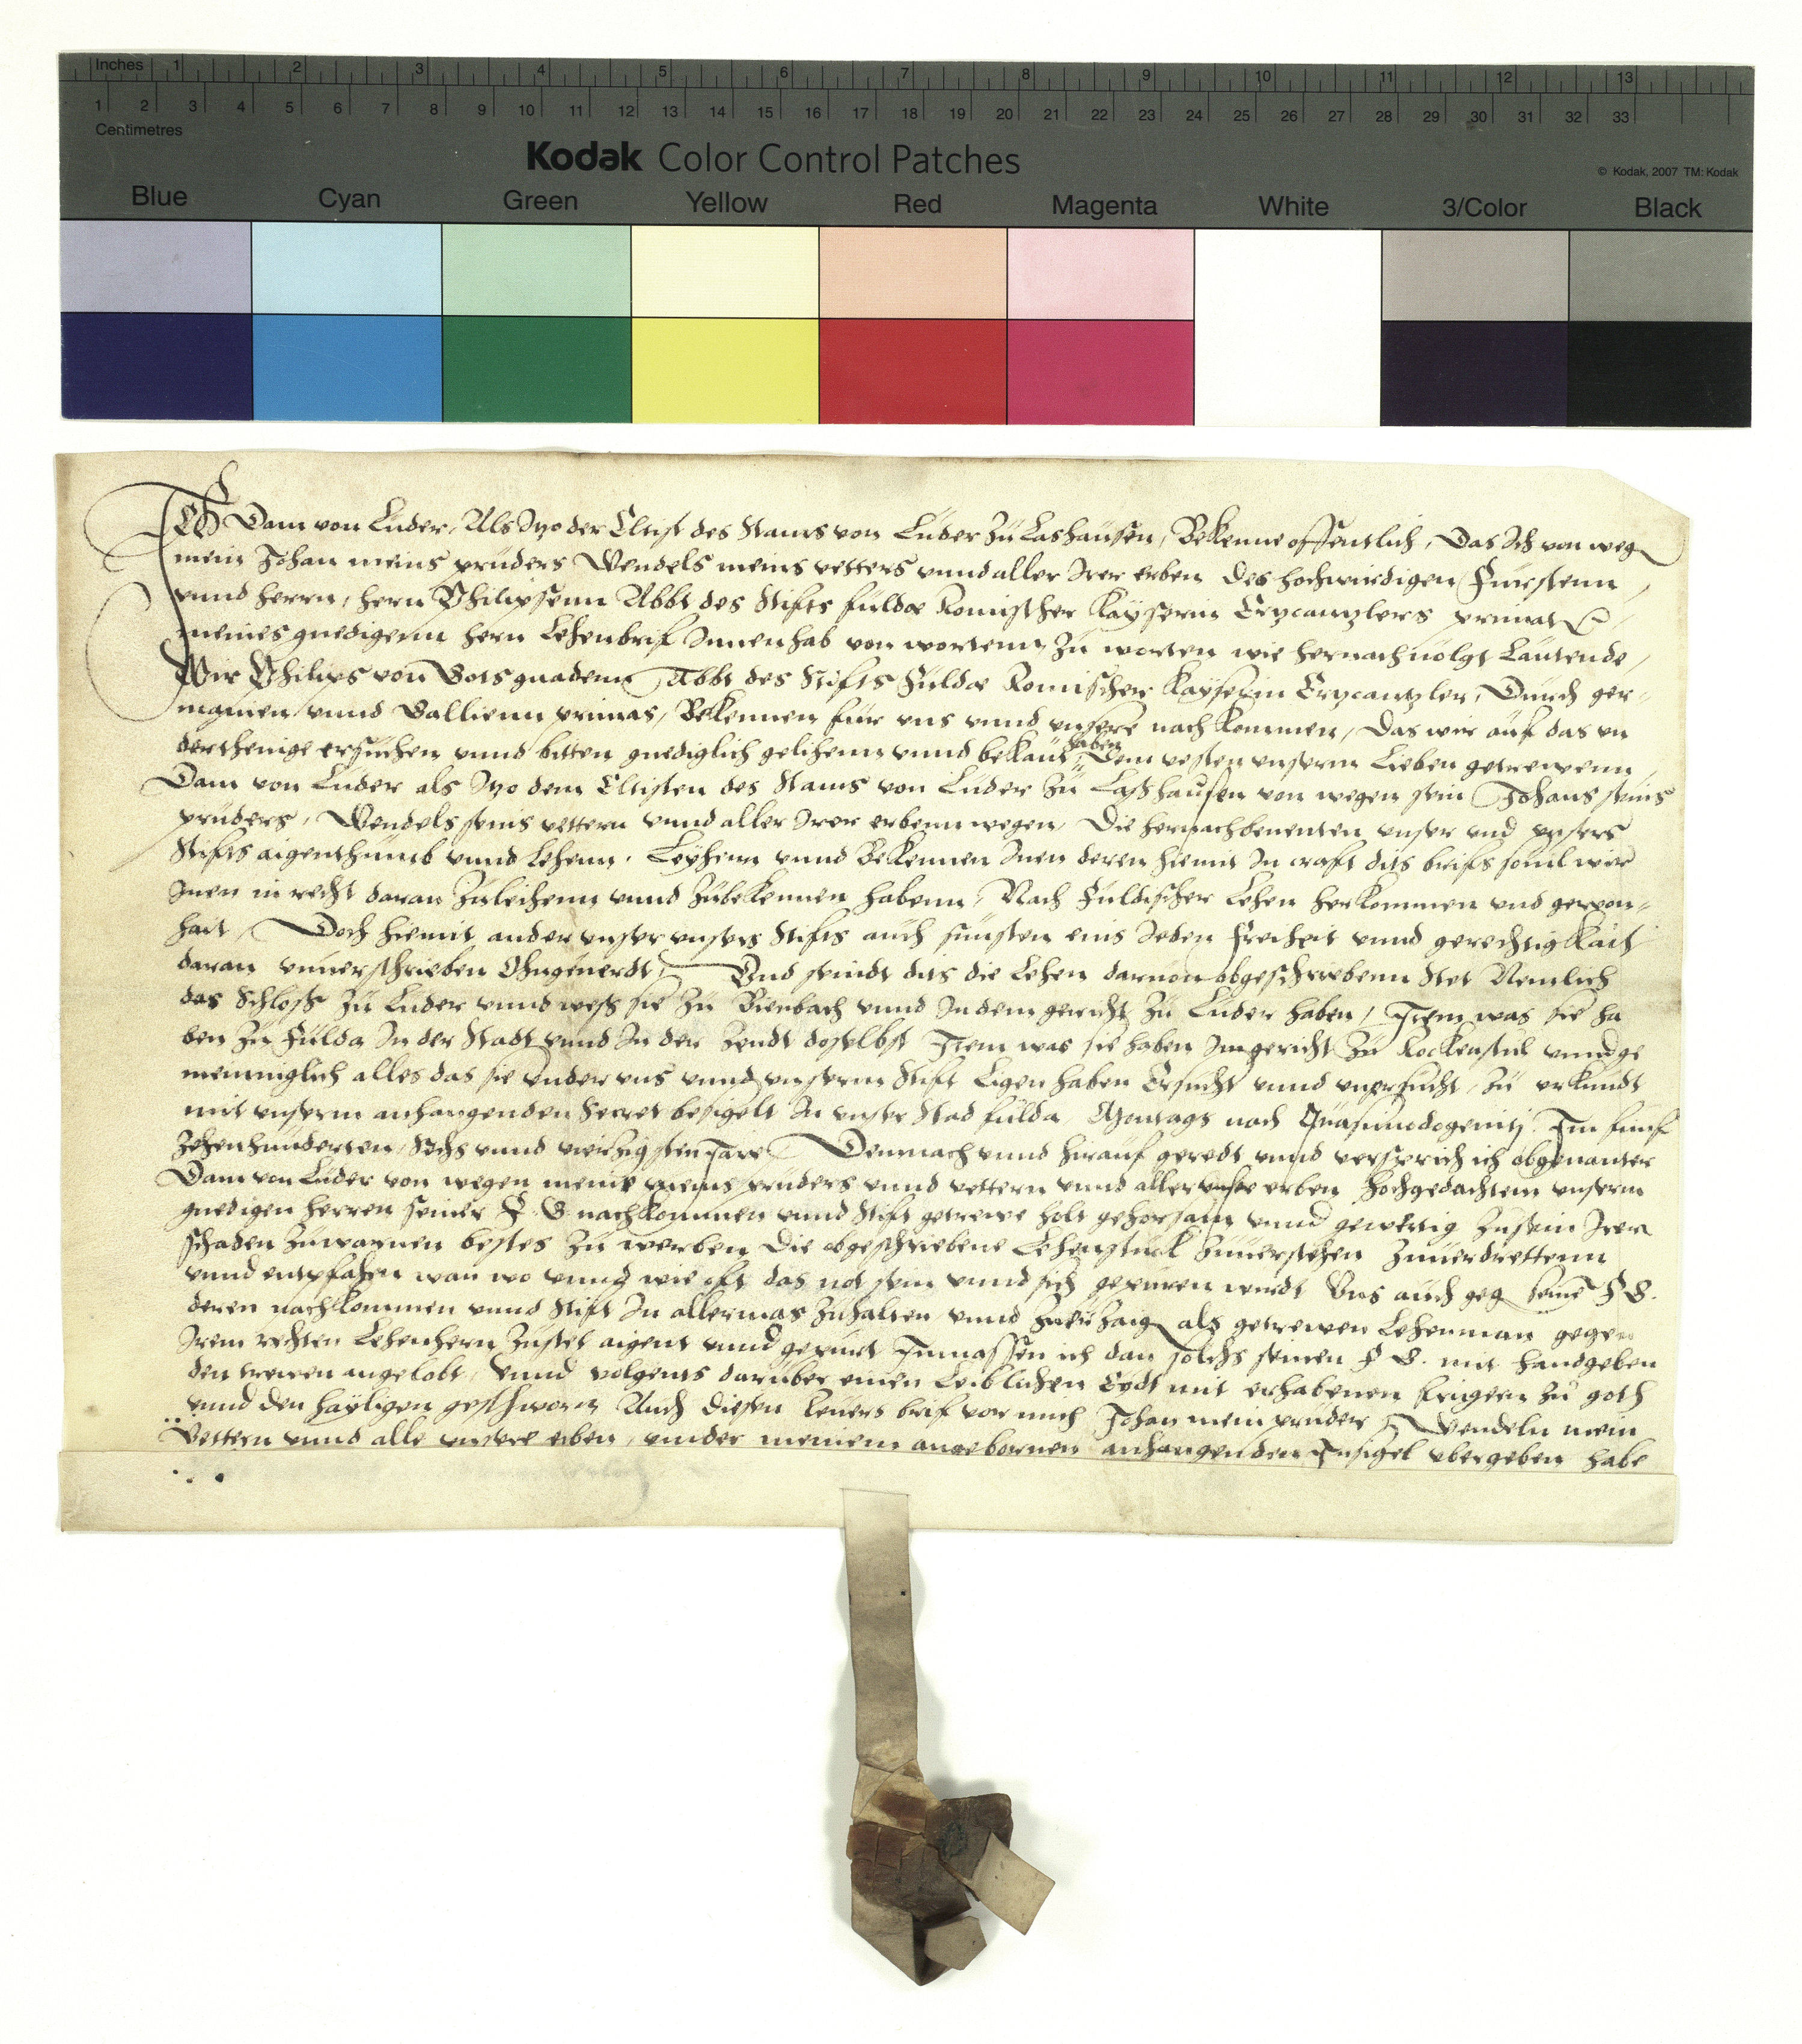 Inches 1 2 3 4 5 6 7 8 9 10 11 12 13
1 2 3 4 5 6 7 8 9 10 11 12 13 14 15 16 17 18 19 20 21 22 23 24 25 26 27 28 29 30 31 32 33
Centimetres
Kodak Color Control Patches
© Kodak, 2007 TM: Kodak
Blue Cyan Green Yellow Red Magenta White 3/Color Black
Ich Dam von Luder, Als Itzo der Eltist des Stams von Luder zu Lashausen, Bekenne offentlich, Das Ich von weg
mein Johan meins pruders Wendels meins vetters vnnd aller Irer erben des hochwirdigen Furstenn
vnnd herrn, hern Philipsenn Abbt des Stifts fulda Romischer Kayserin Ertzcantzlers primat
meines gnedigenn hern Lehenbrif Innenhab von wortenn zu worten wie hernachuolgt Lautende
Wir Philips von Gots gnadenn Abbt des Stifts Fulda Romischer Kayserin Ertzcantzler, Durch ger-
manien vnnd Gallienn primas, Bekennen für vns vnnd vnsere nachkommen, Das wir auf das vn
derthenige ersuchen vnnd bitten gnediglich gelihenn vnnd bekant haben Dem vesten vnserm Lieben getrewenn
Dam von Luder als Itzo dem Eltisten des Stams von Luder zu Lashausen von wegen sein Johans seins
pruders, Wendels seins vettern vnnd aller Irer erbenn wegen, Die hernachbenenten vnser vnd vnsers
Stifts aigenthumb vnnd Lehenn. Leyhenn vnnd Bekennen Inen deren hiemit In craft dits brifs souil wir
Inen in recht daran zuleihenn vnnd zubekennen habenn, Nach Fuldischer Lehen herkommen vnd gewon-
hait, Doch hiemit ander vnser vnsers Stifts auch sunsten eins Ieden Freiheit vnnd gerechtigkait
daran vnuerschrieben Ohngeuerdt, Vnd seindt dits die Lehen daruon obgeschriebenn stet Nemlich
das Schloss zu Luder vnnd wess sie zu Bienbach vnnd In dem gericht zu Luder haben, Item was sie ha
ben zu Fulda In der Stadt vnnd In der Zendt doselbst Item was sie haben Im gericht zu Rockenstul vnnd ge
menniglich alles das sie vnder vns vnnd vnserm Stift Ligen haben Ersucht vnnd vnersucht, zu vrkundt
mit vnserm anhangenden Secret besigelt In vnser Stad fulda Montags nach Quasimodogenitj. Im funf
zehenhunderten, Sechs vnnd vierzigsten Jare Demnach vnnd hirauf geredt vnnd versprich ich obgenanter
Dam von Luder von wegen mein meins pruders vnnd vettern vnnd aller vnser erben hochgedachtem vnserm
gnedigen herren seiner F. G. nachkommen vnnd Stift getrewe holt gehorsam vnnd gewertig zusein Irer
schaden zuwarnen bestes zu werben Die obgeschriebene Lehenstuck zuuerstehen zuuerdrettenn
vnnd entpfahen wan wo vnnd wie oft das not sein vnnd sich gepuren wirdt Vns auch geg seine F G.
deren nachkommen vnnd Stift In allermas zuhalten vnnd zuerzaig als getrewen Lehenman gegen
Irem rechten Lehenhern zustet aigent vnnd gepurt Inmassen ich dan solchs seinen F G. mit handgeben
den trewen angelobt, Vnnd volgents daruber einen Leiblichen Eydt mit erhabenen fringern zu goth
vnnd den hayligen geschworn Auch diesen leuers brif vor mich Johan mein pruder Wendeln mein
Vettern vnnd alle vnsere erben, vnnder meinem angebornen anhangenden Insigel vbergeben habe